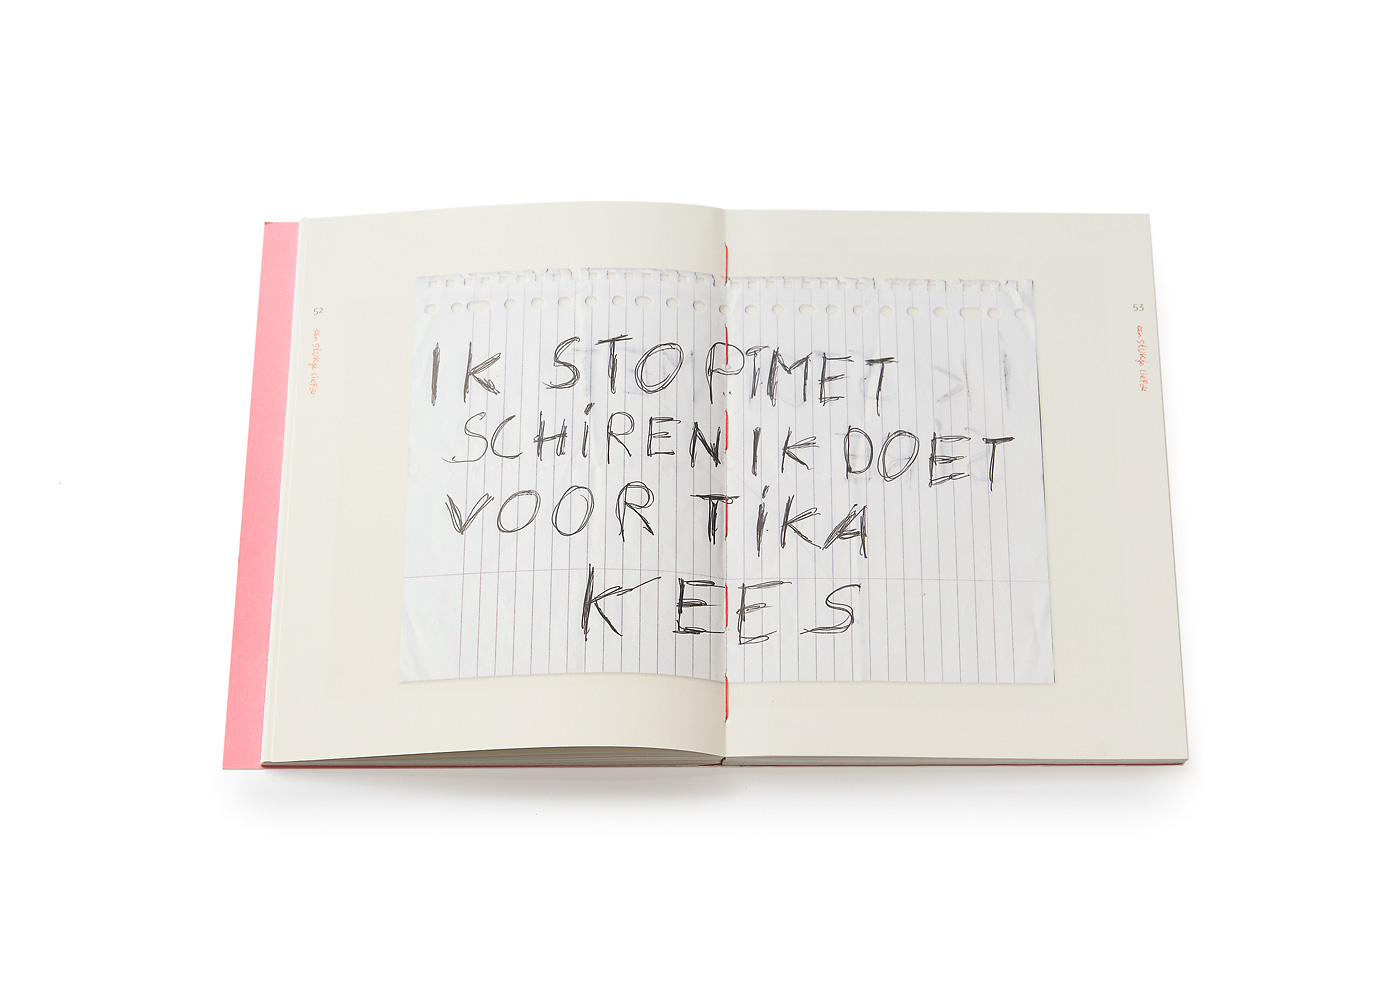 52
een stukje liefde
IK STOPTMET
SCHIREN IK DOET
VOOR TIKA
KEES
53
een stukje liefde